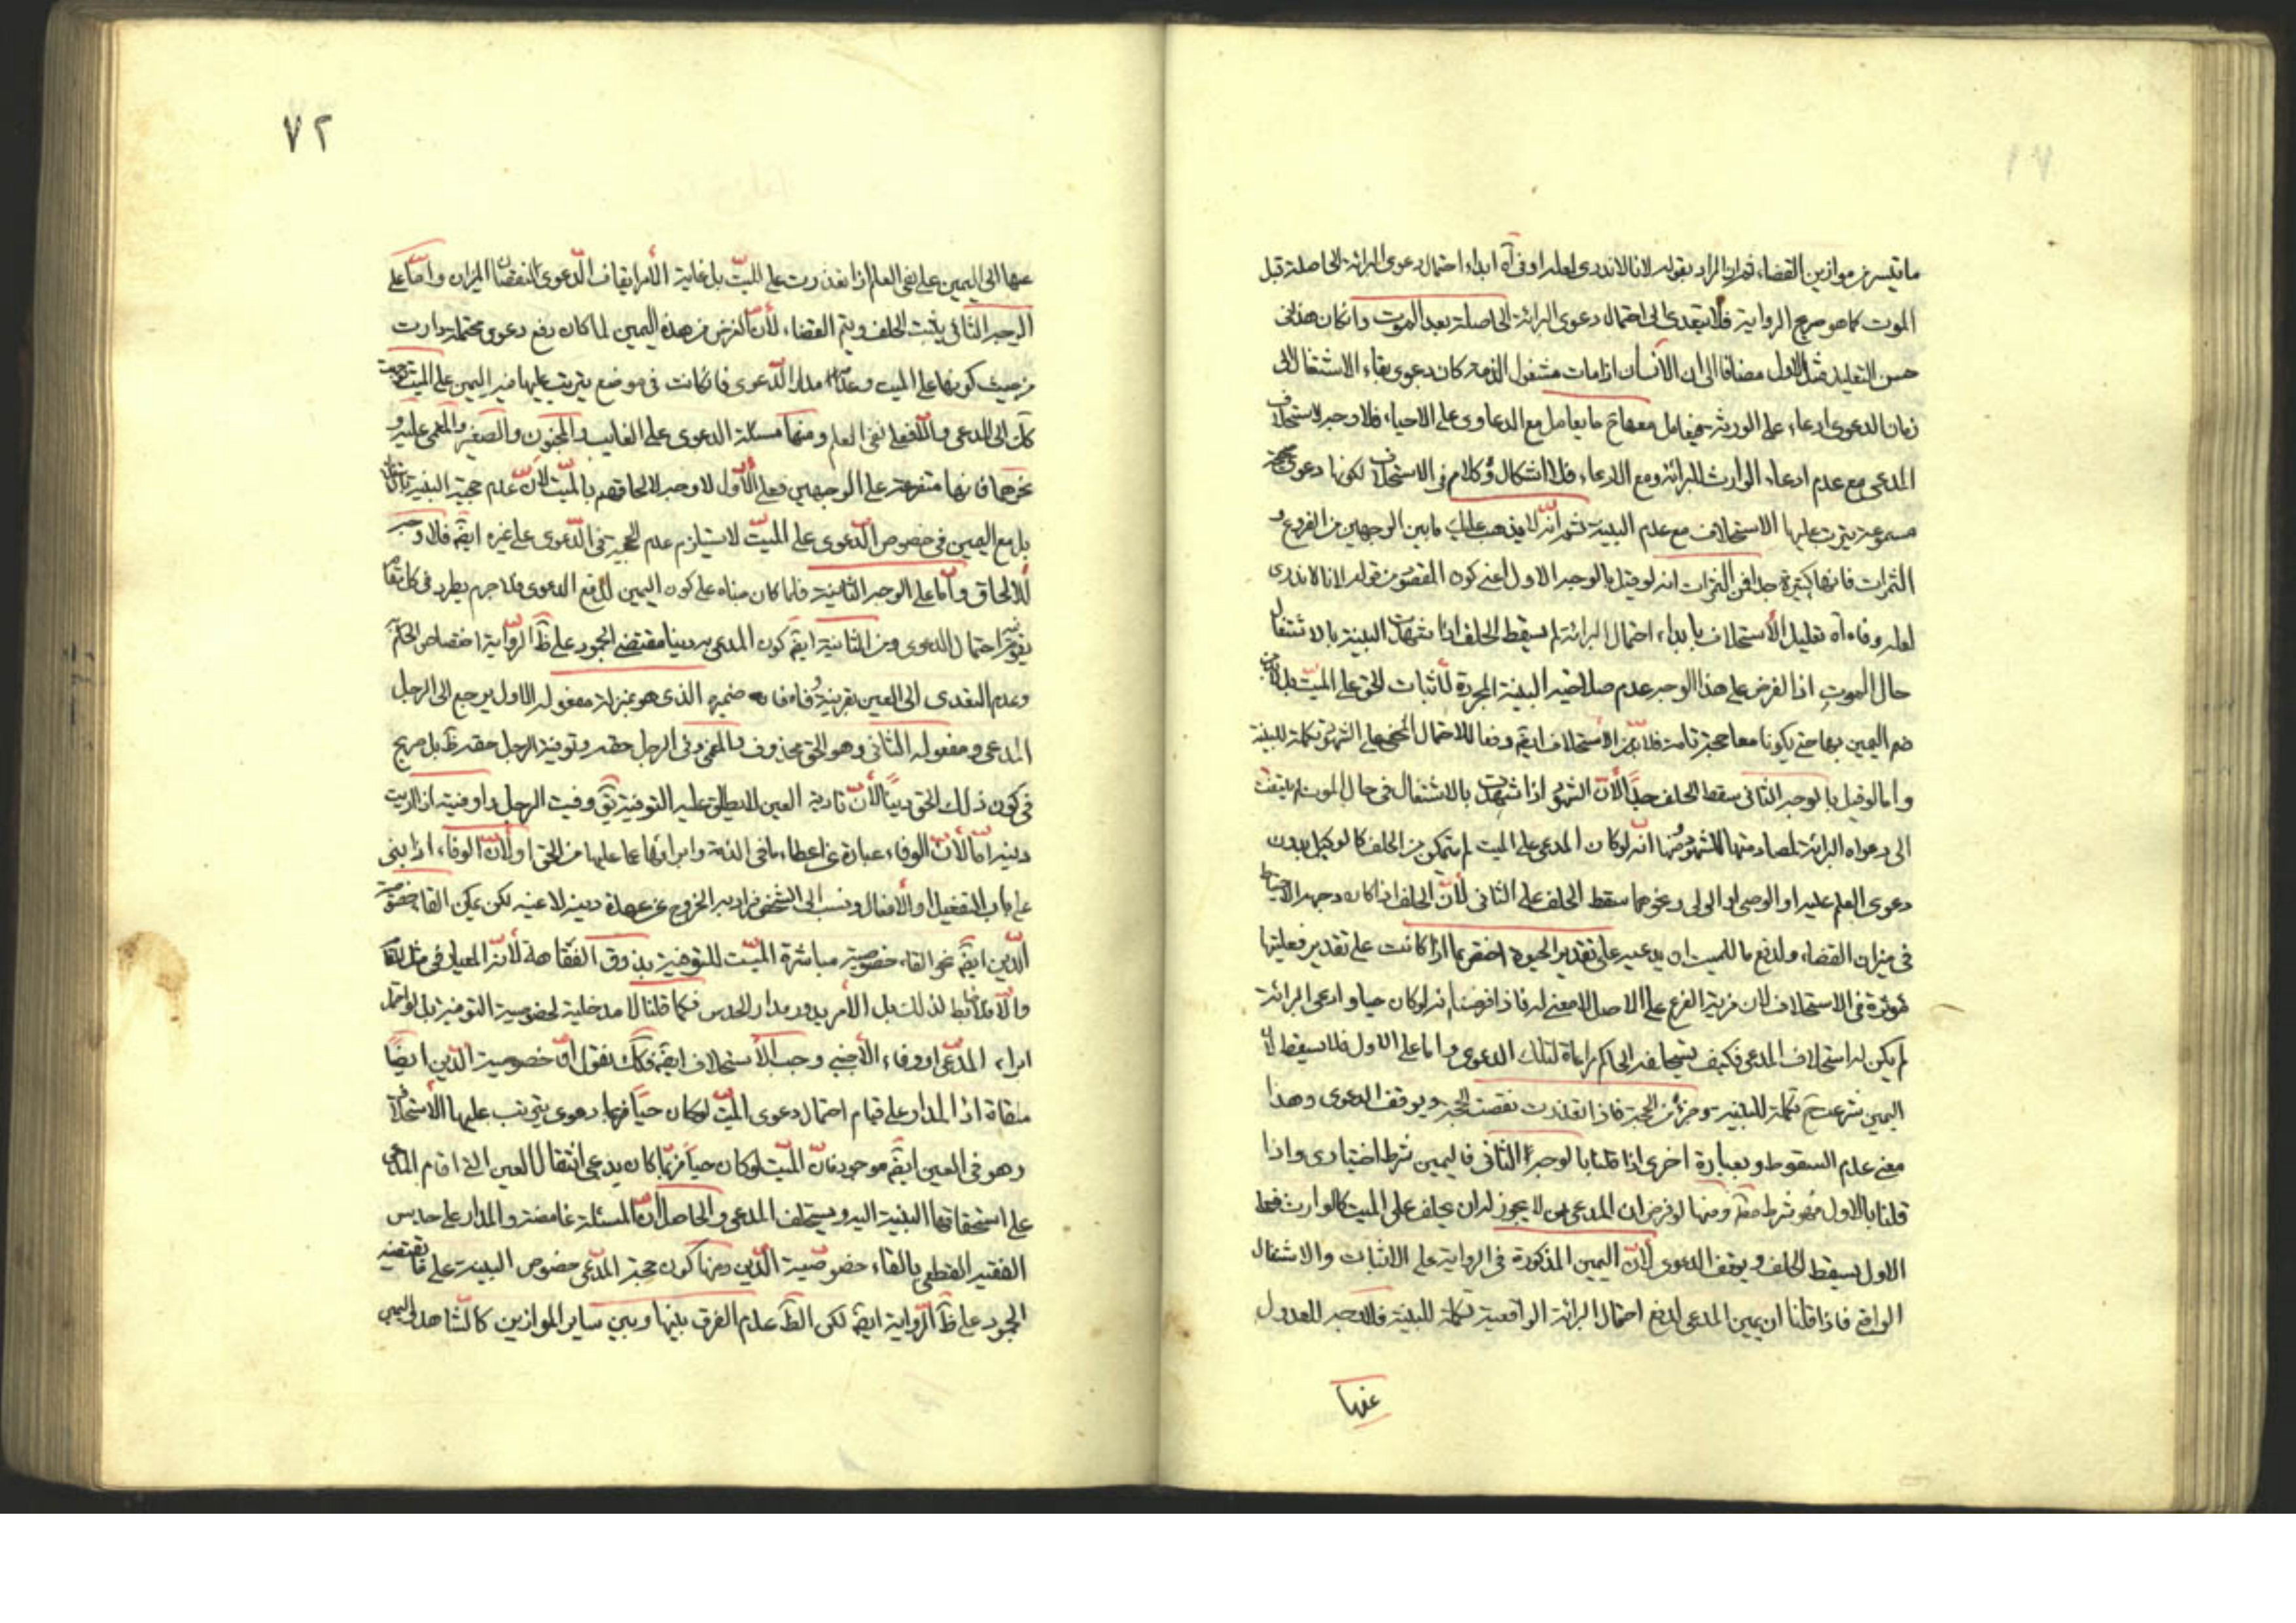 ما تيسر من موازين القضاء ثم ان المراد بقوله لانا لاندرى لعله اوفى آه ابداء احتمال دعوى البرائة الحاصلة قبل
الموت كما هو صريح الرواية فلا يتعدى الى احتمال دعوى البرائة الحاصلة بعد الموت وان كان هذا فى
حسن التعليل مثل الاول مضافا الى ان الانسان اذا مات مشغول الذمة كان دعوى بقاء الاشتغال الى
زمان الدعوى ادعاء على الورثة فيعامل معها مع ما يعامل مع الدعاوى على الاحياء فلا وجه لاستحلاف
المدعى مع عدم ادعاء الوارث البرائة ومع الادعاء فلا اشكال ولا كلام فى الاستحلاف لكونها دعوى صحيحة
مسموعة يترتب عليها الاستحلاف مع عدم البينة ثم انه لا يذهب عليك ما بين الوجهين من الفروع و
الثمرات فانها كثيرة جدا فمن الثمرات انه لو قيل بالوجه الاول اعنى كون المقصود من قوله لانا لاندرى
لعله وفاه آه تعليل الاستحلاف بابداء احتمال البرائة لم يسقط الحلف اذا شهدت البينة بالاشتغال
حال الموت اذ الفرض على هذا الوجه عدم صلاحية البينة المجردة لاثبات الحق على الميت بل لابد من
ضم اليمين بها حتى يكونا معا حجة تامة فلابد من الاستحلاف ايضا دفعا للاحتمال المخفى على الشهود تكملة للبينة
واما لو قيل بالوجه الثانى سقط الحلف جدا لان الشهود اذا شهدت بالاشتغال فى حال الموت لم يلتفت
الى دعواه البرائة لمصادمتها للشهود ومنها انه لو كان المدعى على الميت لم يتمكن من الحلف كالوكيل بدون
دعوى العلم عليه او الوصى او الولى ونحوهما سقط الحلف على الثانى لان الحلف اذا كان وجهه الاحتياط
فى ميزان القضاء ولدفع ما للميت ان يدعيه على تقدير الحيوة اختص بما اذا كانت على تقدير فعليتها
مؤثرة فى الاستحلاف لان مزية الفرع على الاصل لا معنى له فاذا فرضنا انه لو كان حيا وادعى البرائة
لم يكن له استحلاف المدعى فكيف يستحلفه الحاكم مراعاة لتلك الدعوى واما على الاول فلا يسقط لان
اليمين شرعت تكملة للبينة وجزء من الحجة فاذا تعذرت نقصت الحجة ويوقف الدعوى وهذا
معنى عدم السقوط وبعبارة اخرى اذا قلنا بالوجه الثانى فاليمين شرط اختيارى واذا
قلنا بالاول فهو شرط مطلقا ومنها لو فرض ان المدعى من لا يجوز له ان يحلف على الميت كالوارث فعلى
الاول يسقط الحلف ويوقف الدعوى لان اليمين المذكورة فى الرواية على الاثبات والاشتغال
الواقعى فاذا قلنا ان يمين المدعى لدفع احتمال البرائة الواقعية تكملة للبينة فلا وجه للعدول
عنها
٧٢
عنها الى اليمين على نفى العلم اذا تعذرت على الميت بل غاية الامر ايقاف الدعوى لنقصان الميزان واما على
الوجه الثانى يثبت الحلف ويتم القضاء لان الغرض من هذه اليمين لما كان رفع دعوى محتملة دارت
من حيث كونها على الميت وعدمه مدار الدعوى فان كانت فى موضع يترتب عليها فيه اليمين على الميت توجهت
كك الى المدعى والا فعلى نفى العلم ومنها مسئلة الدعوى على الغايب والمجنون والصغير والمغمى عليه و
نحوهما فانها متفرعة على الوجهين فعلى الاول لا وجه لالحاقهم بالميت لان عدم حجية البينة
بل مع اليمين فى خصوص الدعوى على الميت لا يستلزم عدم الحجية فى الدعوى على غيره ايضا فلا وجه
للالحاق واما على الوجه الثانى فلما كان مبناه على كون اليمين لدفع الدعوى فلا جرم يطرد فى كل مقام
يقوم فيه احتمال الدعوى ومن الثانية ايضا كون المدعى به دينا مقتضى الجمود على ظ الرواية اختصاص الحكم به
وعدم التعدى الى العين بقرينة وفاه فان ضميره الذى هو بمنزلة مفعوله الاول يرجع الى الرجل
المدعى ومفعوله الثانى وهو الحق محذوف والمعنى وفى الرجل حقه وتوفية الرجل حقه ظ بل صريح
فى كون ذلك الحق دينا لان تادية العين لا يطلق عليه التوفية يق وفيت الرجل واوفيته اذا اديت
دينه اما لان الوفاء عبارة عن اعطاء ما فى الذمة وابرائها عما عليها من الحق او لان الوفاء اذا بنى
على باب التفعيل او الافعال ونسب الى الشخص يراد به الخروج عن عهدة دينه لا عينه لكن يمكن القاء خصوصية
الدين ايضا نحو القاء خصوصية مباشرة الميت للتوفية بذوق الفقاهة لانه المعيار فى مثل المقام
والا فلا ضابط لذلك بل الامر يدور مدار الحدس فكما قلنا لا مدخلية لخصوصية التوفية بل لو احتمل
ابراء المدعى او وفاء الاجنبى وجب الاستحلاف ايضا فكك نقول ان خصوصية الدين ايضا
ملقاة اذ المدار على قيام احتمال دعوى الميت لو كان حيا فربما دعوى يترتب عليها الاستحلاف
وهو فى العين ايضا موجود فان الميت لو كان حيا فربما كان يدعى انتقال العين التى اقام المدعى
على استحقاقها البينة اليه ويستحلف المدعى والحاصل ان المسئلة غامضة والمدار على حدس
الفقيه القطعى بالقاء خصوصية الدين ومنها كون حجة المدعى خصوص البينة على ما يقتضيه
الجمود على ظ الرواية ايضا لكن الظ عدم الفرق بينها وبين ساير الموازين كالشاهد واليمين